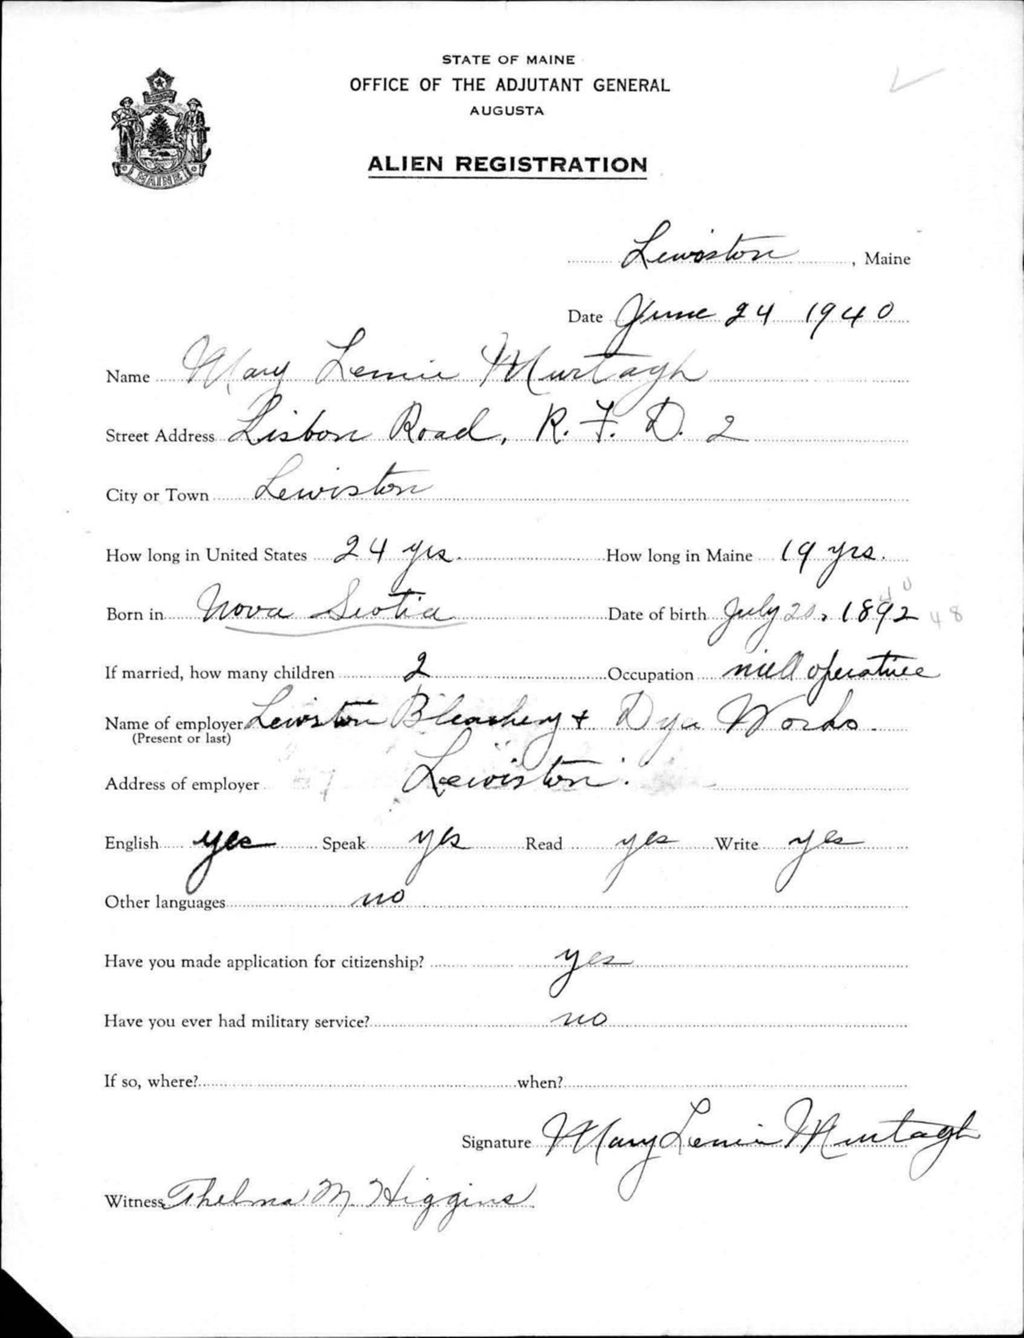 STATE OF MAINE
OFFICE OF THE ADJUTANT GENERAL
AUGUSTA
ALIEN REGISTRATION
MAINE
Lewiston, Maine
Date June 24 1940
Name Mary Lennie Murtagh
Street Address Lisbon Road, R. F. D. 2
City or Town Lewiston
How long in United States 24 yrs. How long in Maine 19 yrs.
Born in Nova Scotia Date of birth July 20, 1892 48
If married, how many children 2 Occupation mill operative
Name of employer Lewiston Bleachery + Dye Works
(Present or last)
Address of employer Lewiston
English yes Speak yes Read yes Write yes
Other languages no
Have you made application for citizenship? yes
Have you ever had military service? no
If so, where? when?
Signature Mary Lennie Murtagh
Witness Thelma M. Higgins